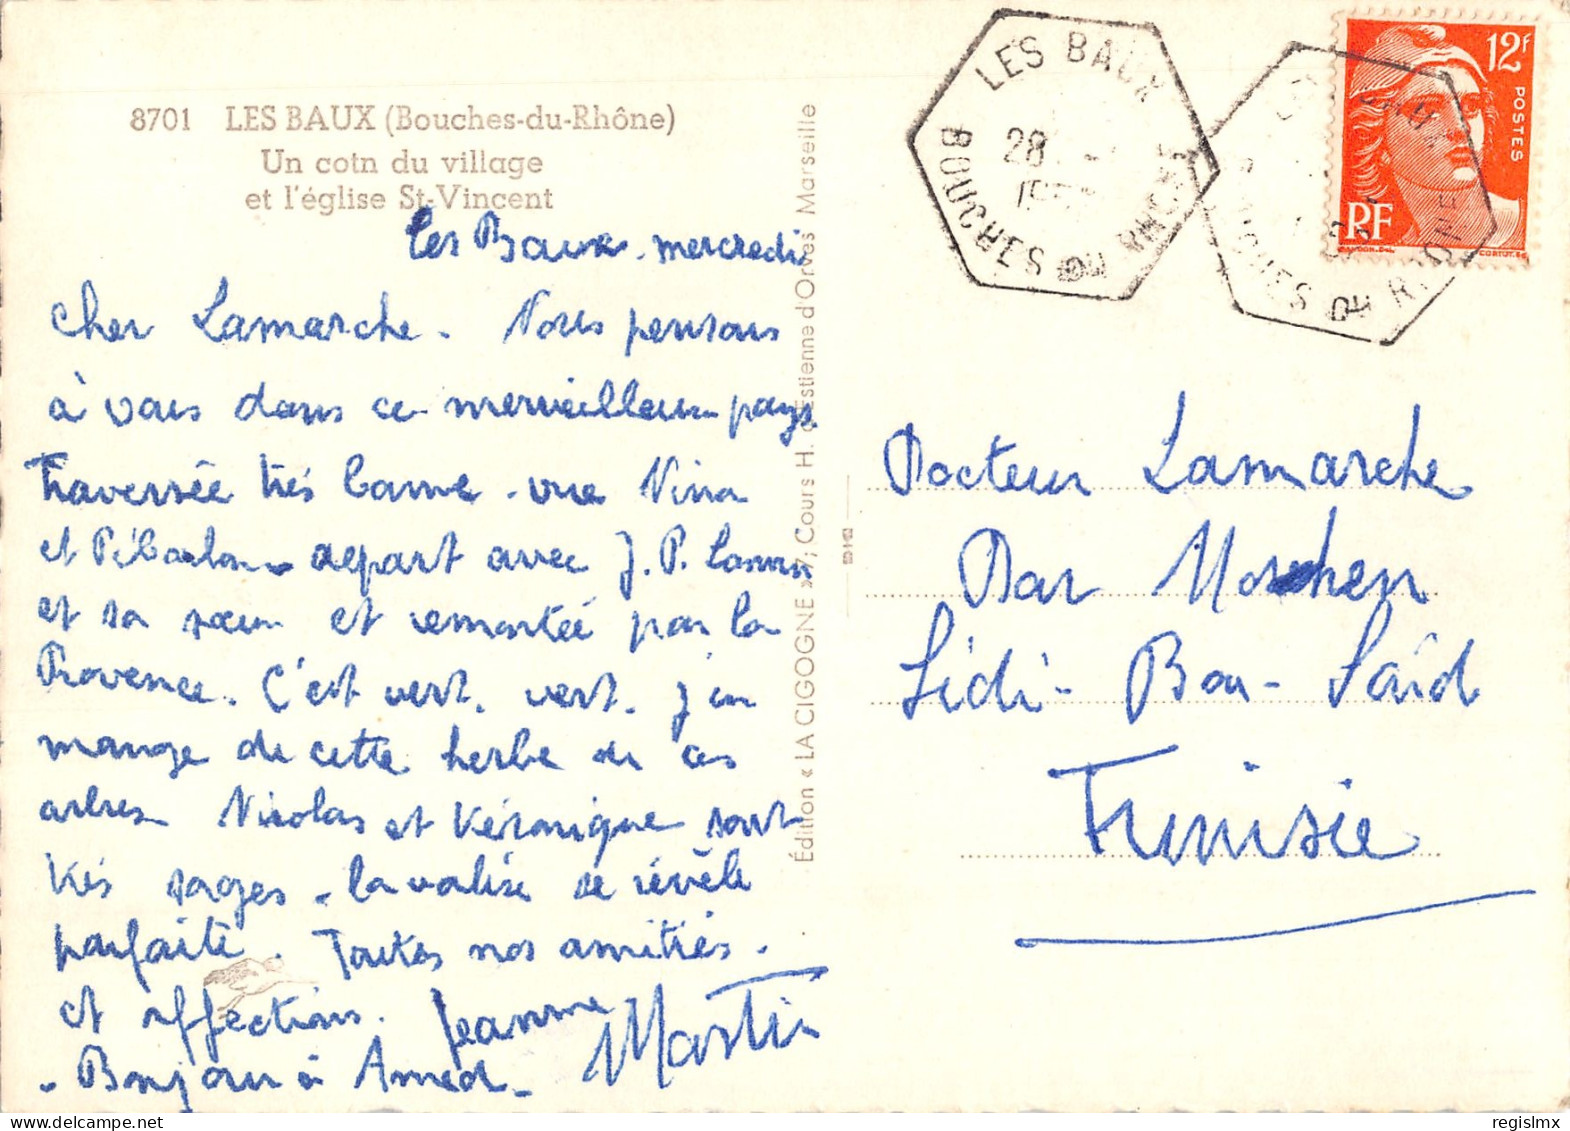 8701 LES BAUX (Bouches-du-Rhône)
Un coin du village
et l'église St-Vincent
Les Baux. mercredi
Cher Lamarche. Nous pensons
à vous dans ce merveilleux pays
Traversée très bonne. vue Nina
et départ avec J. P.
et sa sœur et remontée par la
Provence. C'est vert. vert. j'en
mange de cette herbe de ces
arbres Nicolas et Véronique sont
très sages. la valise se révèle
parfaite. Toutes nos amitiés.
et affections. Jeanne Martin
- Bonjour à Amed.
Édition « LA CIGOGNE » 7, Cours H. d'Estienne d'Orves Marseille
LES BAUX
28
BOUCHES DU RHONE
BOUCHES DU RHONE
12F
POSTES
RF
Docteur Lamarche
Dar
Sidi-Bou-Saïd
Tunisie
regislmx